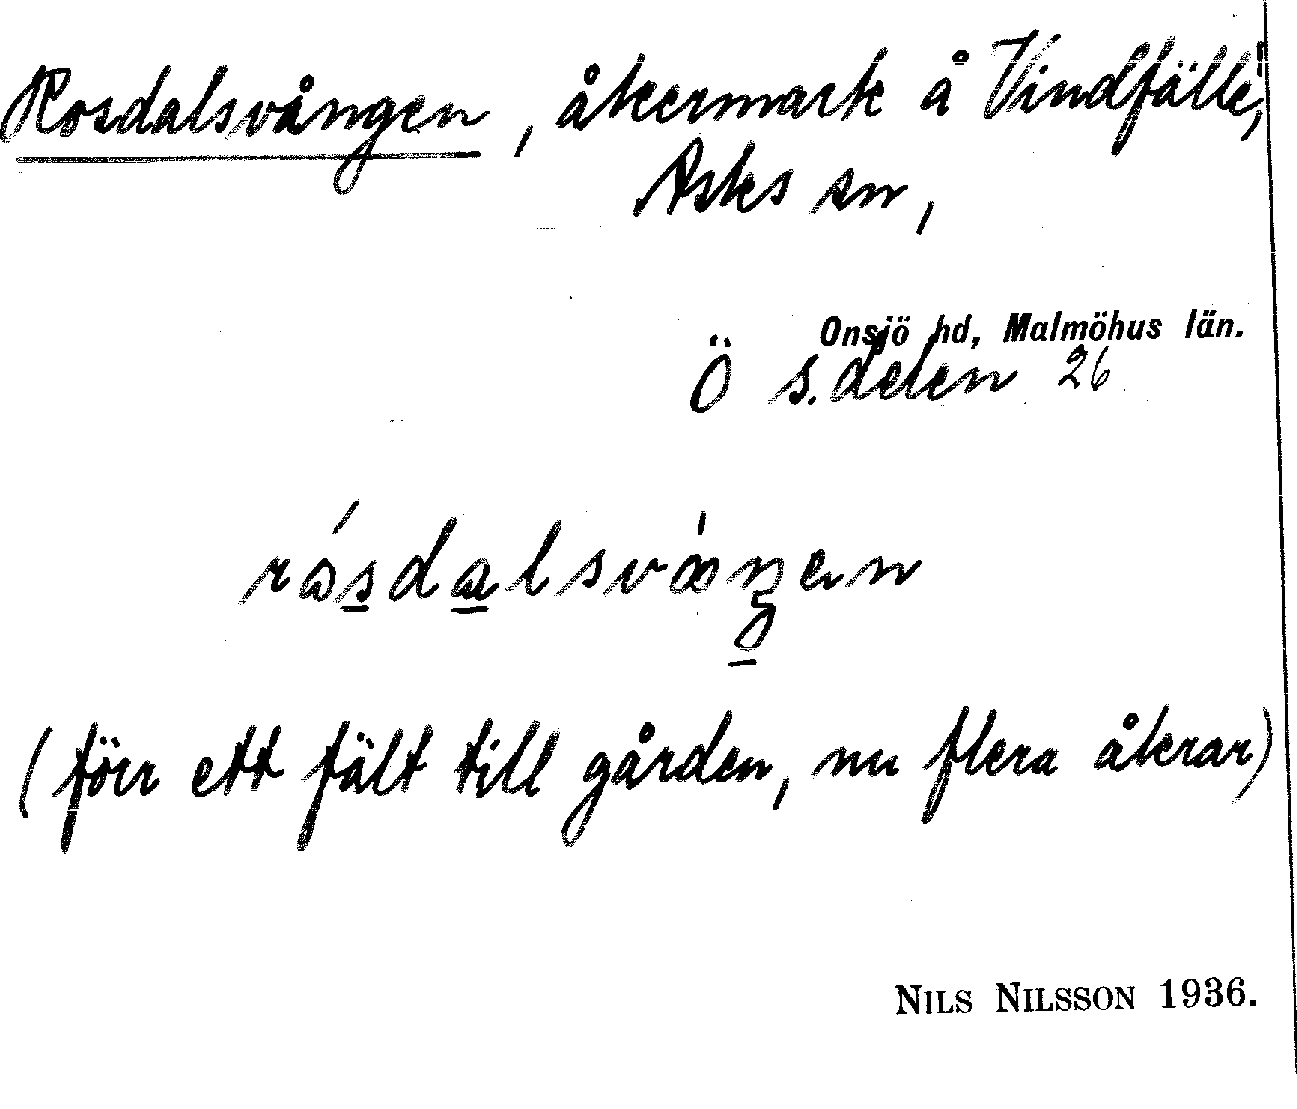 Rosdalsvången, åkermark å Vindfälle,
Asks sn,
Onsjö hd, Malmöhus län.
Ö s. delen 26
(förr ett fält till gården, nu flera åkrar)
NILS NILSSON 1936.